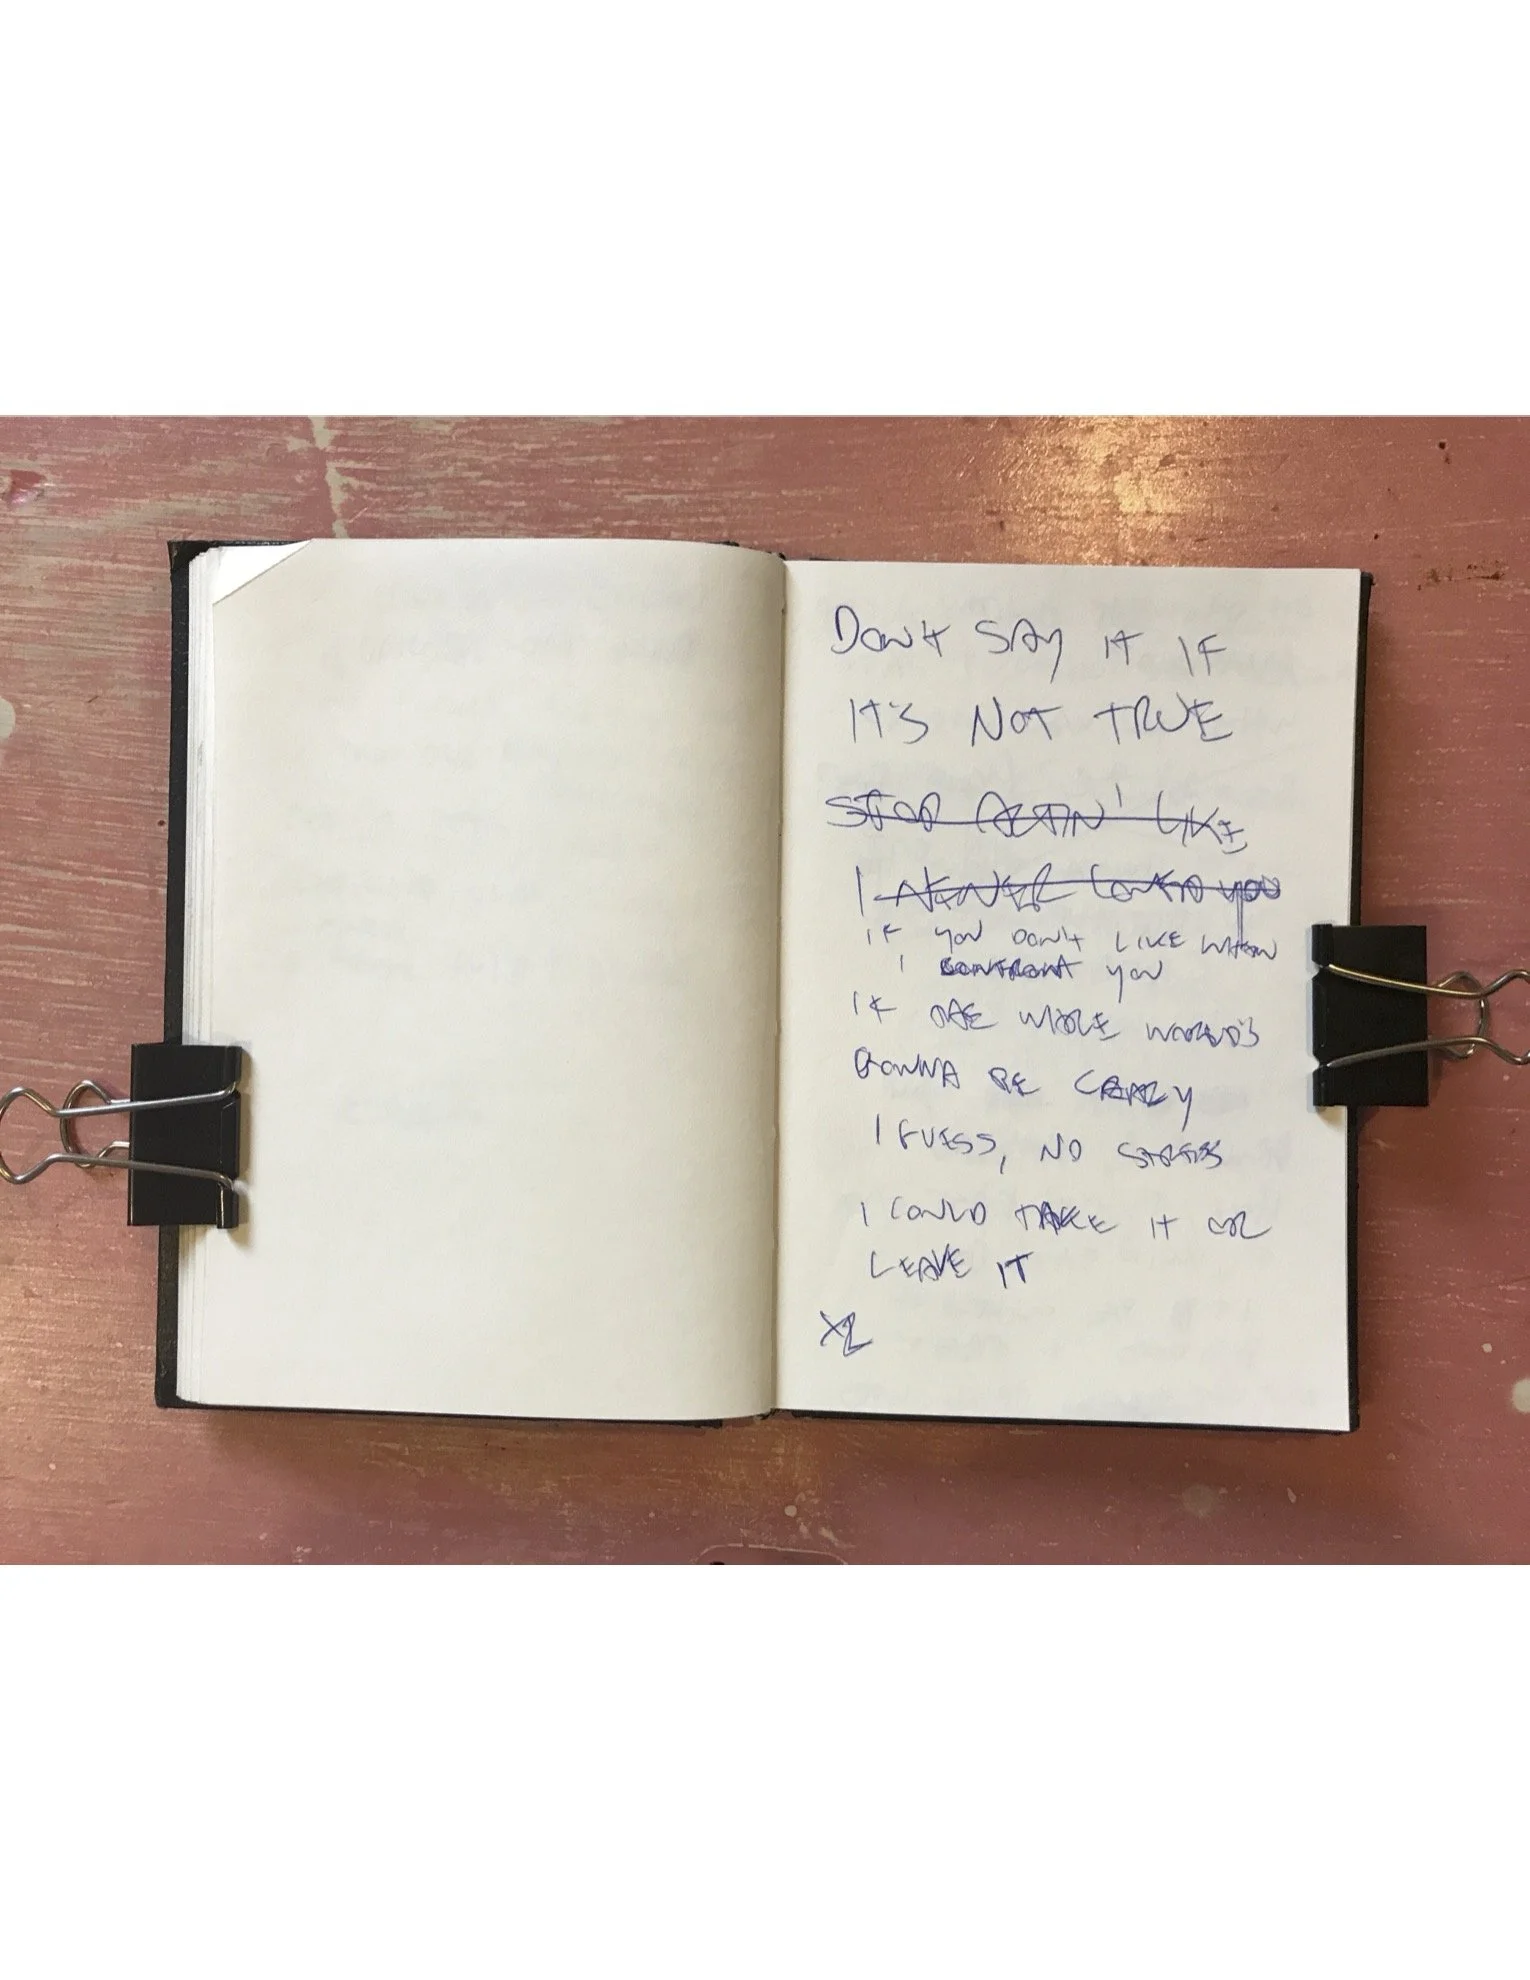 DON'T SAY IT IF
IT'S NOT TRUE
STOP ACTIN' LIKE
I NEVER LOVED YOU
IF YOU DON'T LIKE WHEN
I CONFRONT YOU
IF ONE MORE WORD'S
GONNA BE CRAZY
I GUESS, NO STRESS
I COULD TAKE IT OR
LEAVE IT